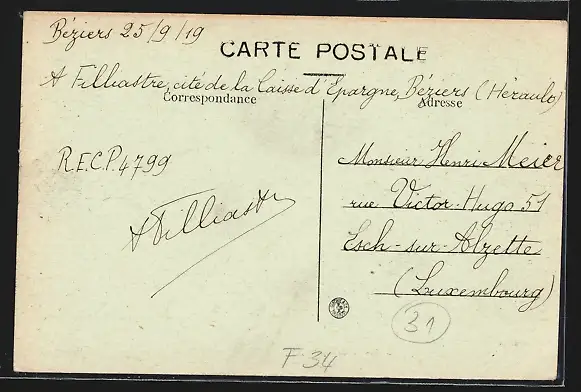 Béziers 25/9/19
CARTE POSTALE
A Filliastre, cité de la Caisse d'Epargne, Béziers (Hérault)
Correspondance
Adresse
R.E.C.P. 4799
A Filliastre
Monsieur Henri Meier
rue Victor-Hugo 51
Esch-sur-Alzette
(Luxembourg)
31
F 34